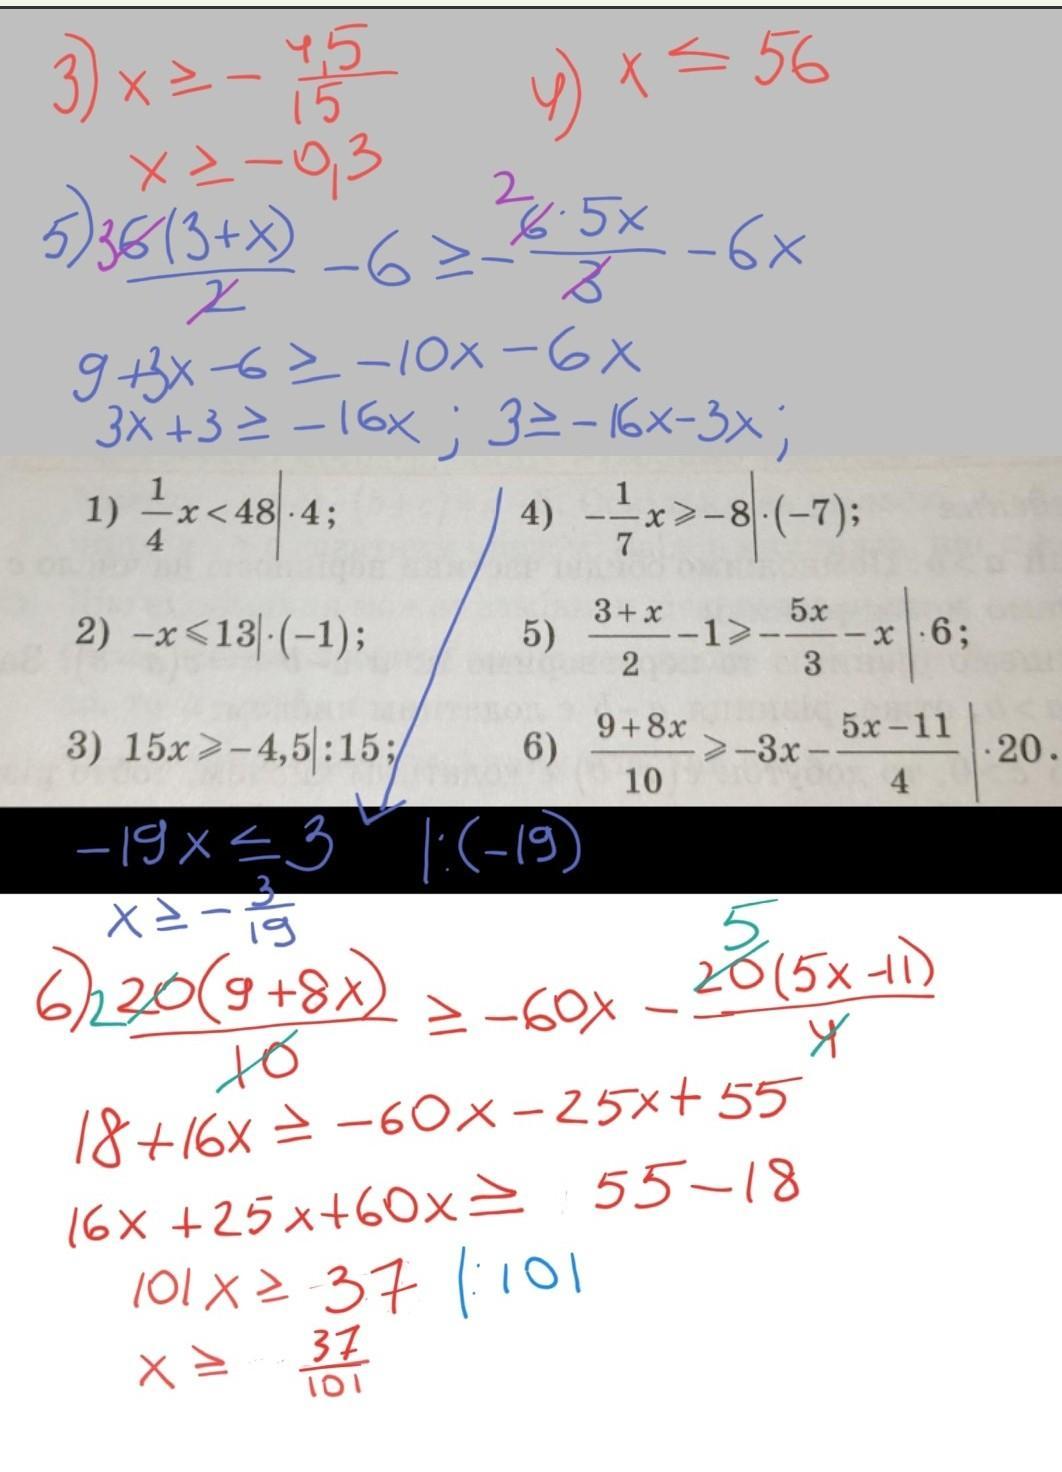 3) x ≥ - 4,5/15
x ≥ -0,3
4) x ≤ 56
5) 3 6(3+x)/2 - 6 ≥ - 2 6·5x/3 - 6x
9+3x-6 ≥ -10x - 6x
3x+3 ≥ -16x ; 3 ≥ -16x-3x ;
1) 1/4 x < 48 | · 4;
2) -x ⩽ 13 | · (-1);
3) 15x ⩾ -4,5 | : 15;
4) -1/7 x ⩾ -8 | · (-7);
5) 3+x/2 - 1 ⩾ - 5x/3 - x | · 6;
6) 9+8x/10 ⩾ -3x - 5x-11/4 | · 20.
-19x ≤ 3 |:(-19)
x ≥ - 3/19
6) 2 20(9+8x)/10 ≥ -60x - 5 20(5x-11)/4
18+16x ≥ -60x - 25x + 55
16x + 25x + 60x ≥ 55-18
101x ≥ 37 |:101
x ≥ 37/101